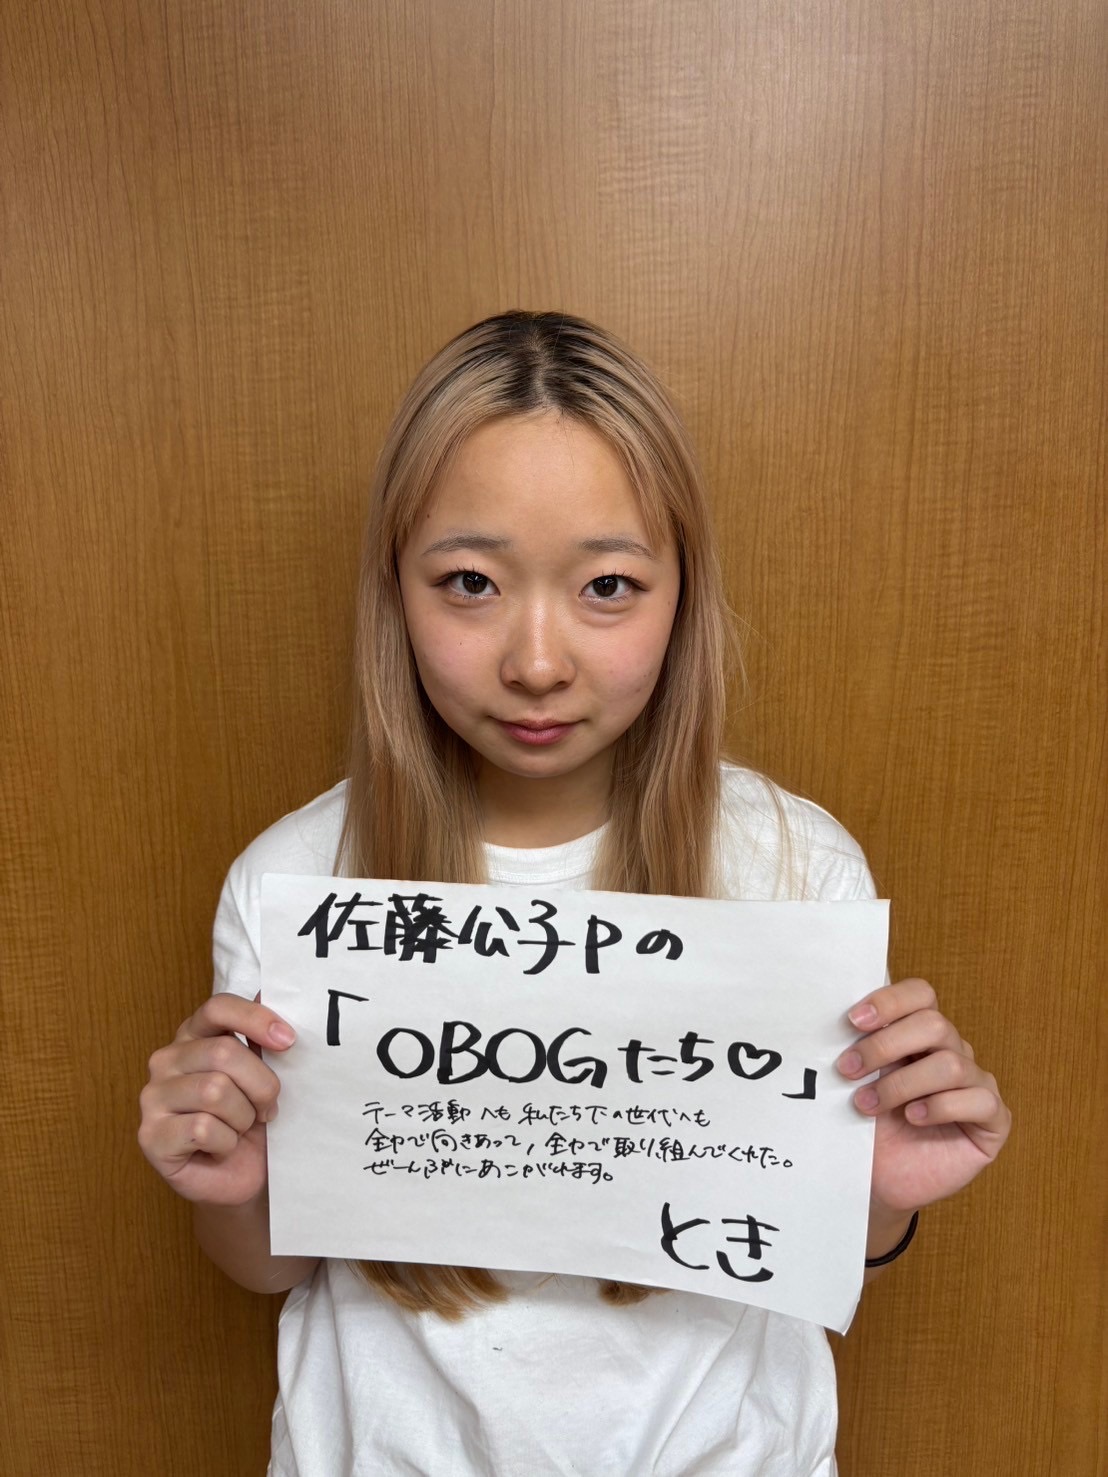 佐藤公子Pの
「OBOGたち♡」
テーマ活動へも私たち下の世代へも
全力で向きあって、全力で取り組んでくれた。
ぜーんぶにあこがれます。
とき